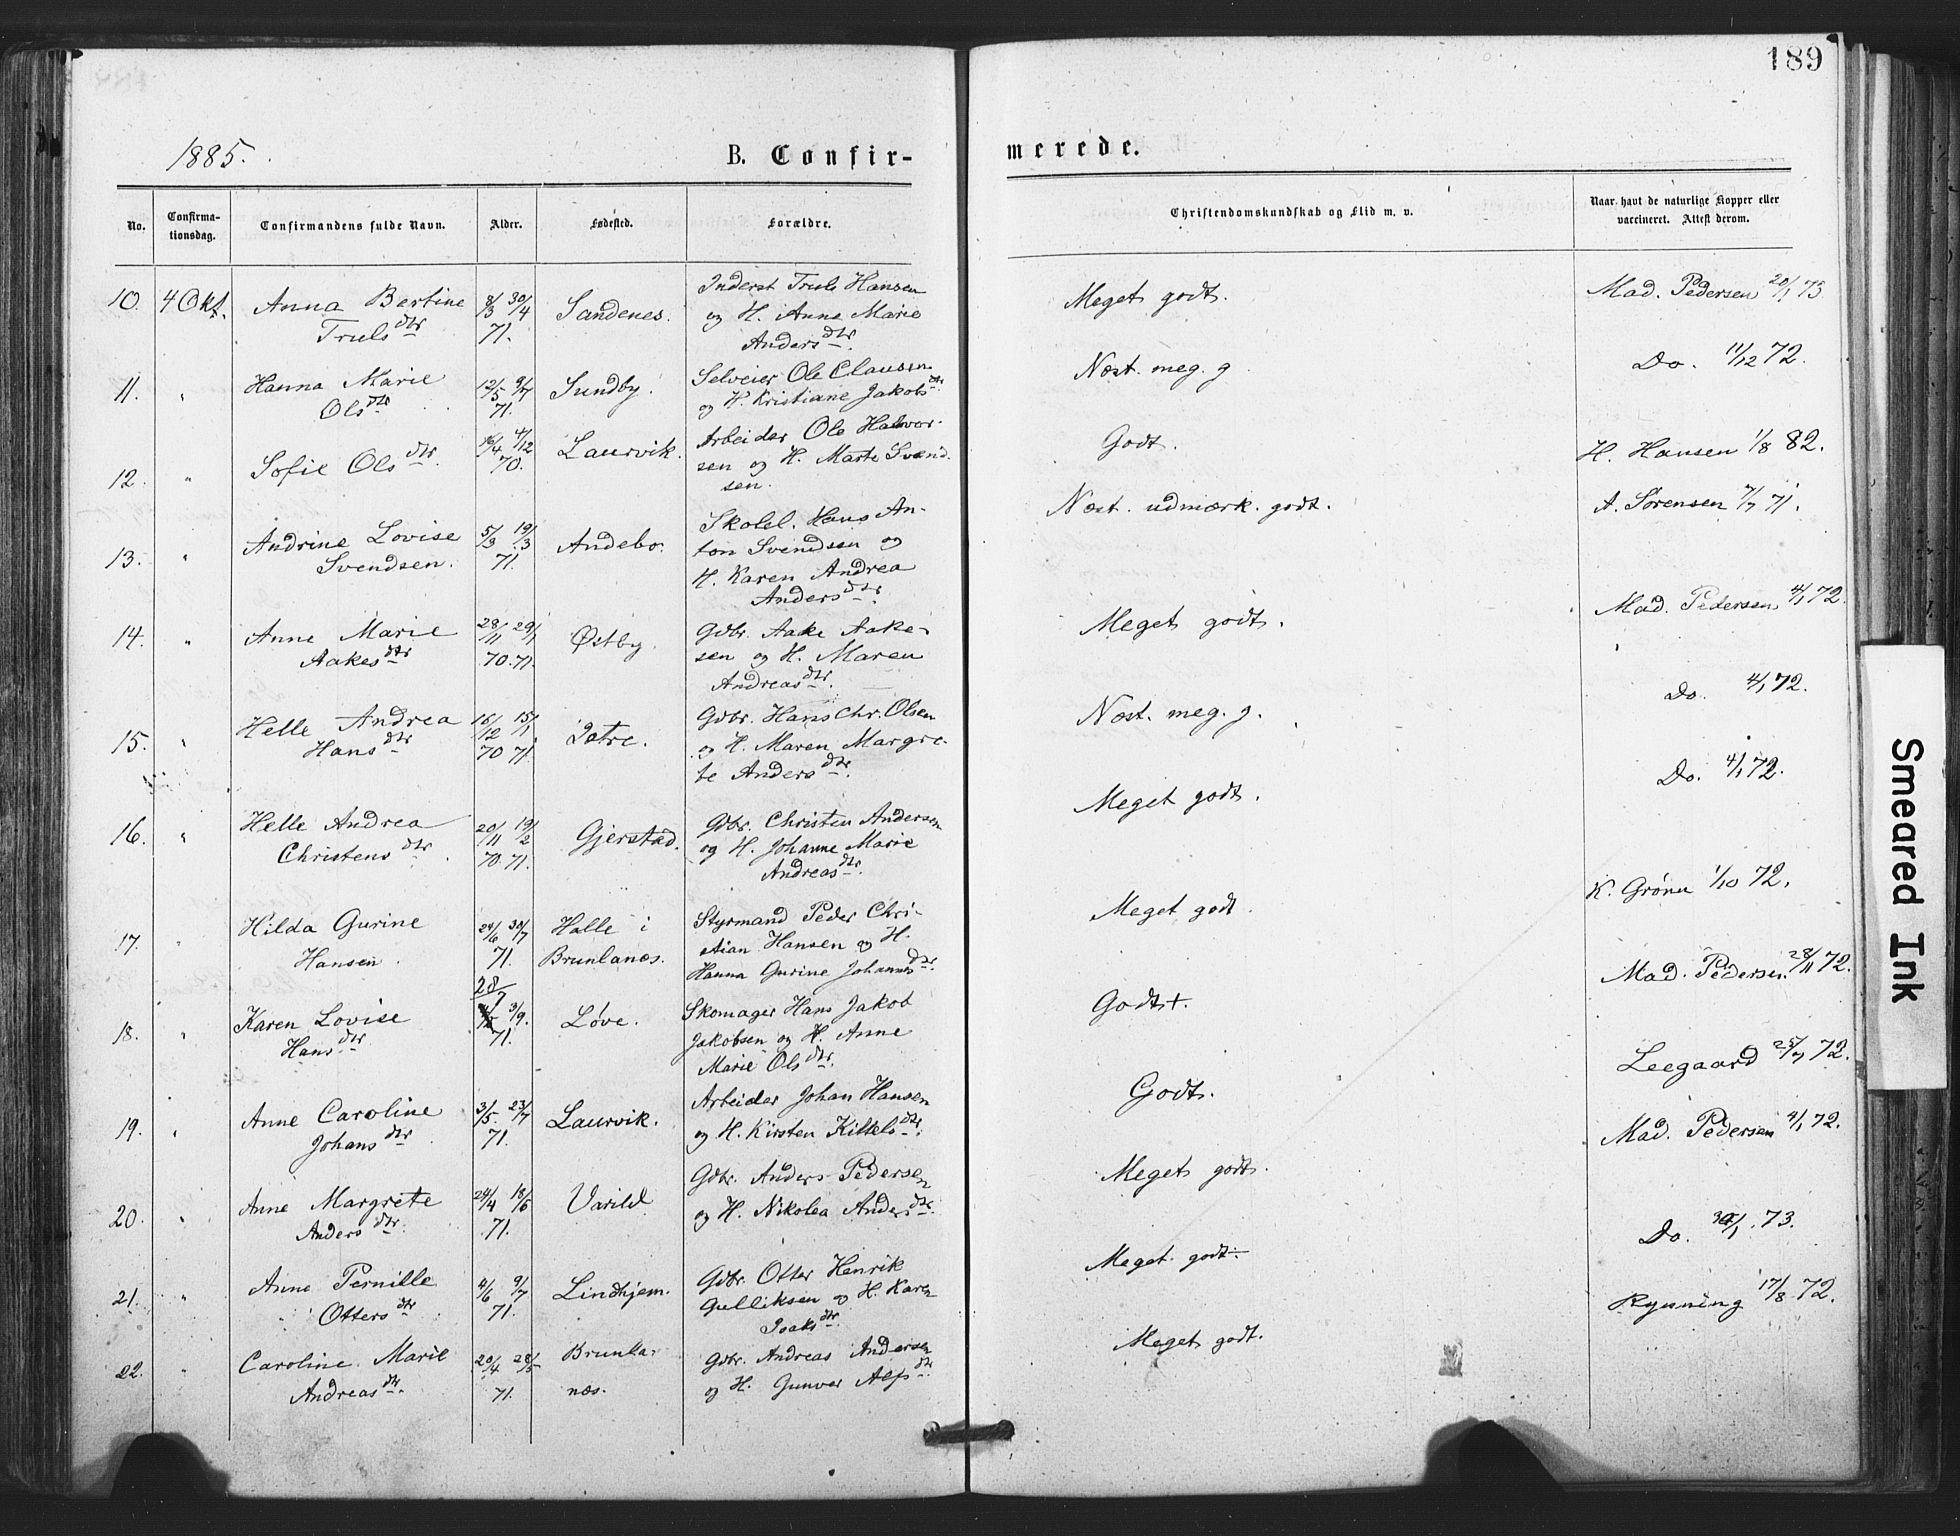 189
1885.
B. Confir-
merede.
No.
Confirma-
tionsdag.
Confirmandens fulde Navn.
Alder.
Fødested.
Forældre.
Christendomskundskab og Flid m. v.
Naar havt de naturlige Kopper eller
vaccineret. Attest derom.
10. 4 Okt. Anna Bertine 8/3 30/4 Sandenes. Inderst Truls Hansen
Truls dtr 71. og H. Anne Marie
Anders dtr.
Meget godt. Mad. Pedersen 20/1 73
11. " Hanna Marie 12/5 9/7 Sundby. Selveier Ole Clausen
Ols dtr 71. og H. Kristiane Jakobs dtr
Næst. meg. g. Do. 11/12 72.
12. " Sofie Ols dtr. 16/4 4/12 Laurvik. Arbeider Ole Halvor-
70. sen og H. Marte Svend-
sen.
Godt. H. Hansen 1/8 82.
13. " Andrine Lovise 5/3 19/3 Andebo. Skolel. Hans An-
Svendsen. 71. ton Svendsen og
H. Karen Andrea
Anders dtr.
Næst. udmærk. godt. A. Sørensen 7/7 71.
14. " Anne Marie 28/11 29/1 Østby. Gdbr. Aake Aake-
Aakes dtr 70. 71. sen og H. Maren
Andreas dtr.
Meget godt. Mad. Pedersen 4/1 72.
15. " Helle Andrea 16/12 15/1 Istre. Gdbr. Hans Chr. Olsen
Hans dtr 70 71. og H. Maren Margre-
te Anders dtr.
Næst. meg. g. Do. 4/1 72.
16. " Helle Andrea 20/11 19/2 Gjerstad. Gdbr. Christen Andersen
Christens dtr. 70. 71. og H. Johanne Marie
Andreas dtr.
Meget godt. Do. 4/1 72.
17. " Hilda Gurine 24/6 30/7 Halle i Styrmand Peder Chri-
Hansen. 71. Brunlanes. stian Hansen og H.
Hanna Gurine Johannes dtr.
Meget godt. K. Grønn 1/10 72.
18. " Karen Lovise 28/7 3/9. Løve. Skomager Hans Jakob
Hans dtr. 71. Jakobsen og H. Anne
Marie Ols dtr.
Godt+. Mad. Pedersen 28/11 72.
19. " Anne Caroline 3/5. 23/7 Laurvik. Arbeider Johan Hansen
Johans dtr 71. og H. Kirsten Kittels dtr.
Godt. Leegaard 25/7 72.
20. " Anne Margrete 24/4 18/5 Varild. Gdbr. Anders Pedersen
Anders dtr. 71. og H. Nikolea Anders dtr.
Meget godt. Mad. Pedersen 4/1 72.
21. " Anne Pernille 4/6 9/7 Lindhjem. Gdbr. Otter Henrik
Otters dtr 71. Gulliksen og H. Karen
Isaks dtr.
Meget godt. Do. 1. 73.
22. " Caroline Marie 20/4 28/5 Brunla- Gdbr. Andreas Andersen
Andreas dtr. 71. næs. og H. Gunvor Alfs dtr.
Meget godt. Rynning 17/8 72.
Smeared Ink